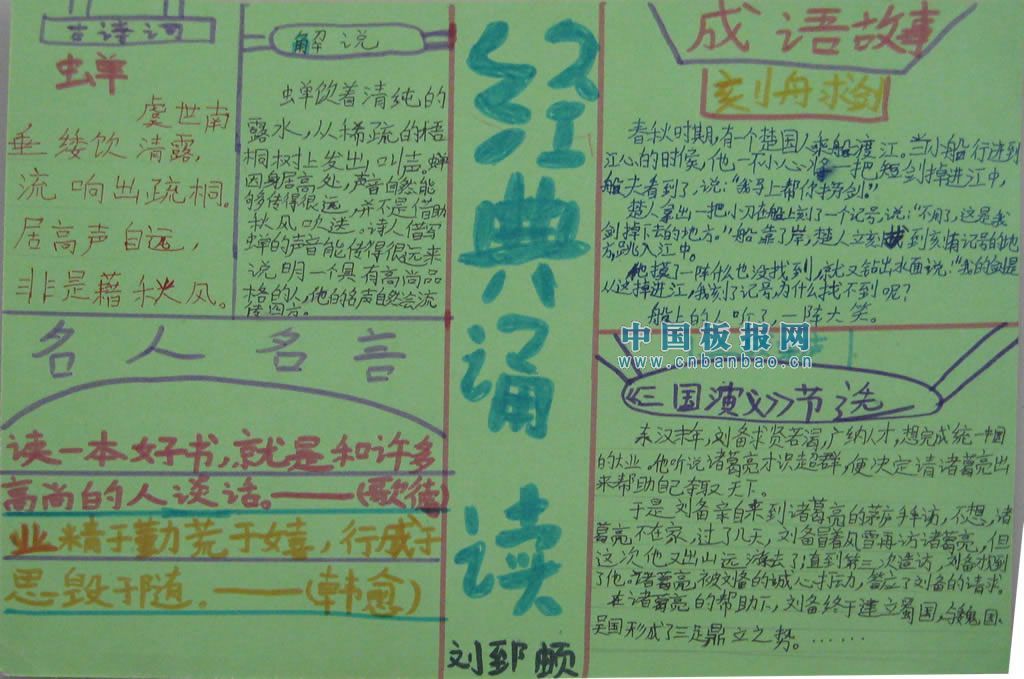 古诗词
蝉
虞世南
垂緌饮清露，
流响出疏桐。
居高声自远，
非是藉秋风。
解说
蝉饮着清纯的
露水，从稀疏的梧
桐树上发出叫声。蝉
因身居高处，声音自然能
够传得很远，并不是借助
秋风吹送。诗人借写
蝉的声音能传得很远来
说明一个具有高尚品
格的人，他的名声自然会流
传四方。
名人名言
读一本好书，就是和许多
高尚的人谈话。——(歌德)
业精于勤荒于嬉，行成于
思毁于随。——(韩愈)
经典诵读
刘郅
成语故事
刻舟求剑
春秋时期，有个楚国人乘船渡江。当小船行进到
江心的时候，他一不小心将一把短剑掉进江中，
船夫看到了，说：“我马上帮你捞剑。”
楚人拿出一把小刀在船上刻了一个记号，说：“不用了，这是我
剑掉下去的地方。”船靠了岸，楚人立刻找到刻有记号的地
方，跳入江中。
他摸了一阵什么也没找到，就又钻出水面说：“我的剑是
从这掉进江，我刻了记号，为什么找不到呢？
船上的人听了，一阵大笑。
中国板报网
www.cnbanbao.cn
《三国演义》节选
东汉末年，刘备求贤若渴，广纳人才，想完成统一中国
的大业。他听说诸葛亮才识超群，便决定请诸葛亮出
来帮助自己争取天下。
于是刘备亲自来到诸葛亮的茅庐拜访，不想，诸
葛亮不在家，过了几天，刘备冒着风雪再访诸葛亮，但
这次他又出山远游去了，直到第三次造访，刘备找到
了他。诸葛亮被刘备的诚心打动，答应了刘备的请求。
在诸葛亮的帮助下，刘备终于建立蜀国，与魏国、
吴国形成了三足鼎立之势。……